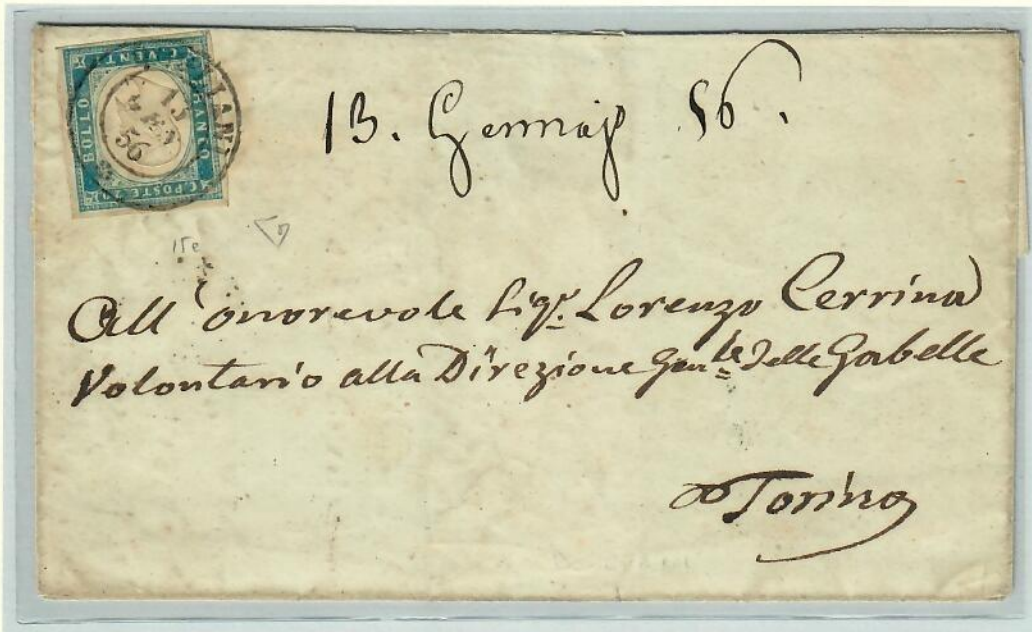 C. VENTI
FRANCO
BOLLO
C. POSTE 20
13
GEN
56
13. Gennaj 56.
15e
All'onorevole Sigr. Lorenzo Cerrina
Volontario alla Direzione Genle delle Gabelle
a Torino